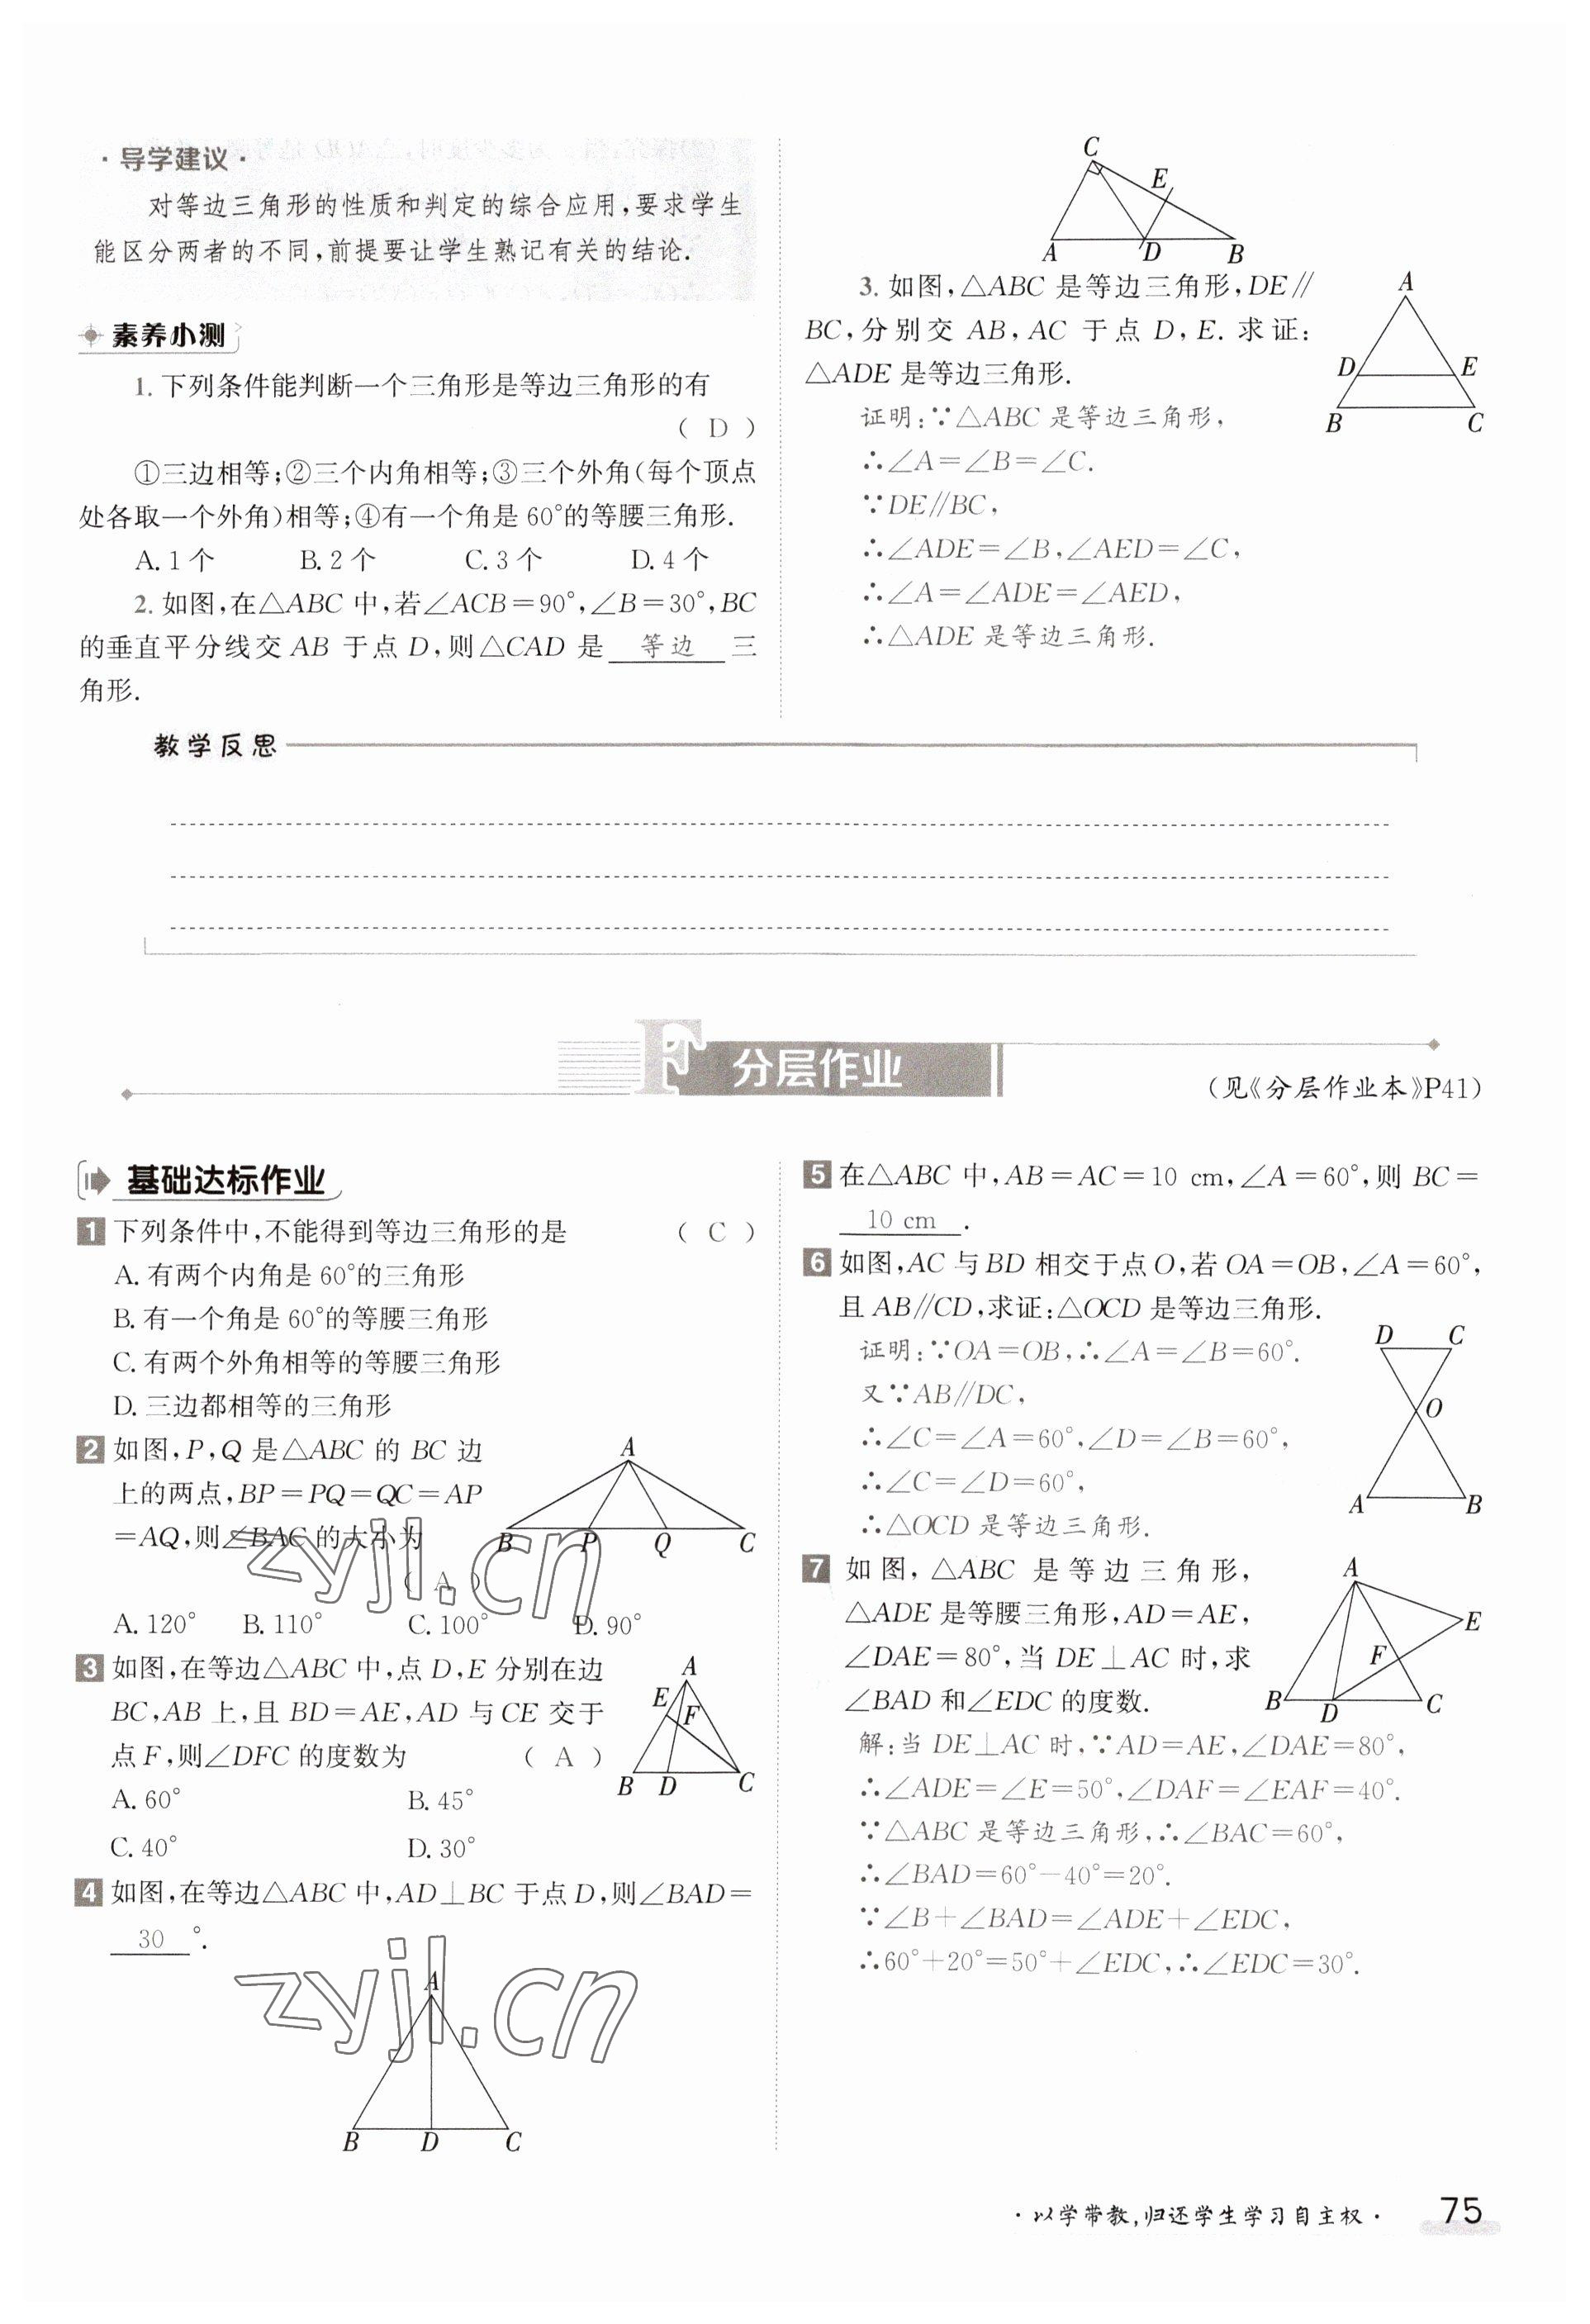 ·导学建议·
对等边三角形的性质和判定的综合应用,要求学生
能区分两者的不同,前提要让学生熟记有关的结论.
素养小测
1. 下列条件能判断一个三角形是等边三角形的有
( D )
①三边相等;②三个内角相等;③三个外角(每个顶点
处各取一个外角)相等;④有一个角是60°的等腰三角形.
A. 1个 B. 2个 C. 3个 D. 4个
2. 如图,在△ABC中,若∠ACB=90°,∠B=30°,BC
的垂直平分线交 AB 于点 D,则△CAD 是 等边 三
角形.
C
E
A D B
3. 如图,△ABC 是等边三角形,DE∥
BC,分别交 AB,AC 于点 D,E. 求证:
△ADE是等边三角形.
A
D E
B C
证明:∵△ABC是等边三角形,
∴∠A=∠B=∠C.
∵DE∥BC,
∴∠ADE=∠B,∠AED=∠C,
∴∠A=∠ADE=∠AED,
∴△ADE是等边三角形.
教学反思
F 分层作业
(见《分层作业本》P41)
基础达标作业
1 下列条件中,不能得到等边三角形的是 ( C )
A. 有两个内角是60°的三角形
B. 有一个角是60°的等腰三角形
C. 有两个外角相等的等腰三角形
D. 三边都相等的三角形
2 如图,P,Q 是△ABC 的 BC 边
上的两点,BP=PQ=QC=AP
=AQ,则∠BAC的大小为
( A )
A
B P Q C
A. 120° B. 110° C. 100° D. 90°
3 如图,在等边△ABC中,点D,E分别在边
BC,AB上,且BD=AE,AD与CE交于
点F,则∠DFC的度数为 ( A )
A
E F
B D C
A. 60° B. 45°
C. 40° D. 30°
4 如图,在等边△ABC中,AD⊥BC于点D,则∠BAD=
30 °.
A
B D C
zyjl.cn
zyjl.cn
5 在△ABC 中,AB=AC=10 cm,∠A=60°,则 BC=
10 cm .
6 如图,AC与BD相交于点O,若OA=OB,∠A=60°,
且AB∥CD,求证:△OCD是等边三角形.
D C
O
A B
证明:∵OA=OB,∴∠A=∠B=60°.
又∵AB∥DC,
∴∠C=∠A=60°,∠D=∠B=60°,
∴∠C=∠D=60°,
∴△OCD是等边三角形.
7 如图,△ABC 是等边三角形,
△ADE是等腰三角形,AD=AE,
∠DAE=80°,当DE⊥AC时,求
∠BAD和∠EDC的度数.
A
E
F
B D C
解:当DE⊥AC时,∵AD=AE,∠DAE=80°,
∴∠ADE=∠E=50°,∠DAF=∠EAF=40°.
∵△ABC是等边三角形,∴∠BAC=60°,
∴∠BAD=60°－40°=20°.
∵∠B+∠BAD=∠ADE+∠EDC,
∴60°+20°=50°+∠EDC,∴∠EDC=30°.
·以学带教,归还学生学习自主权·
75